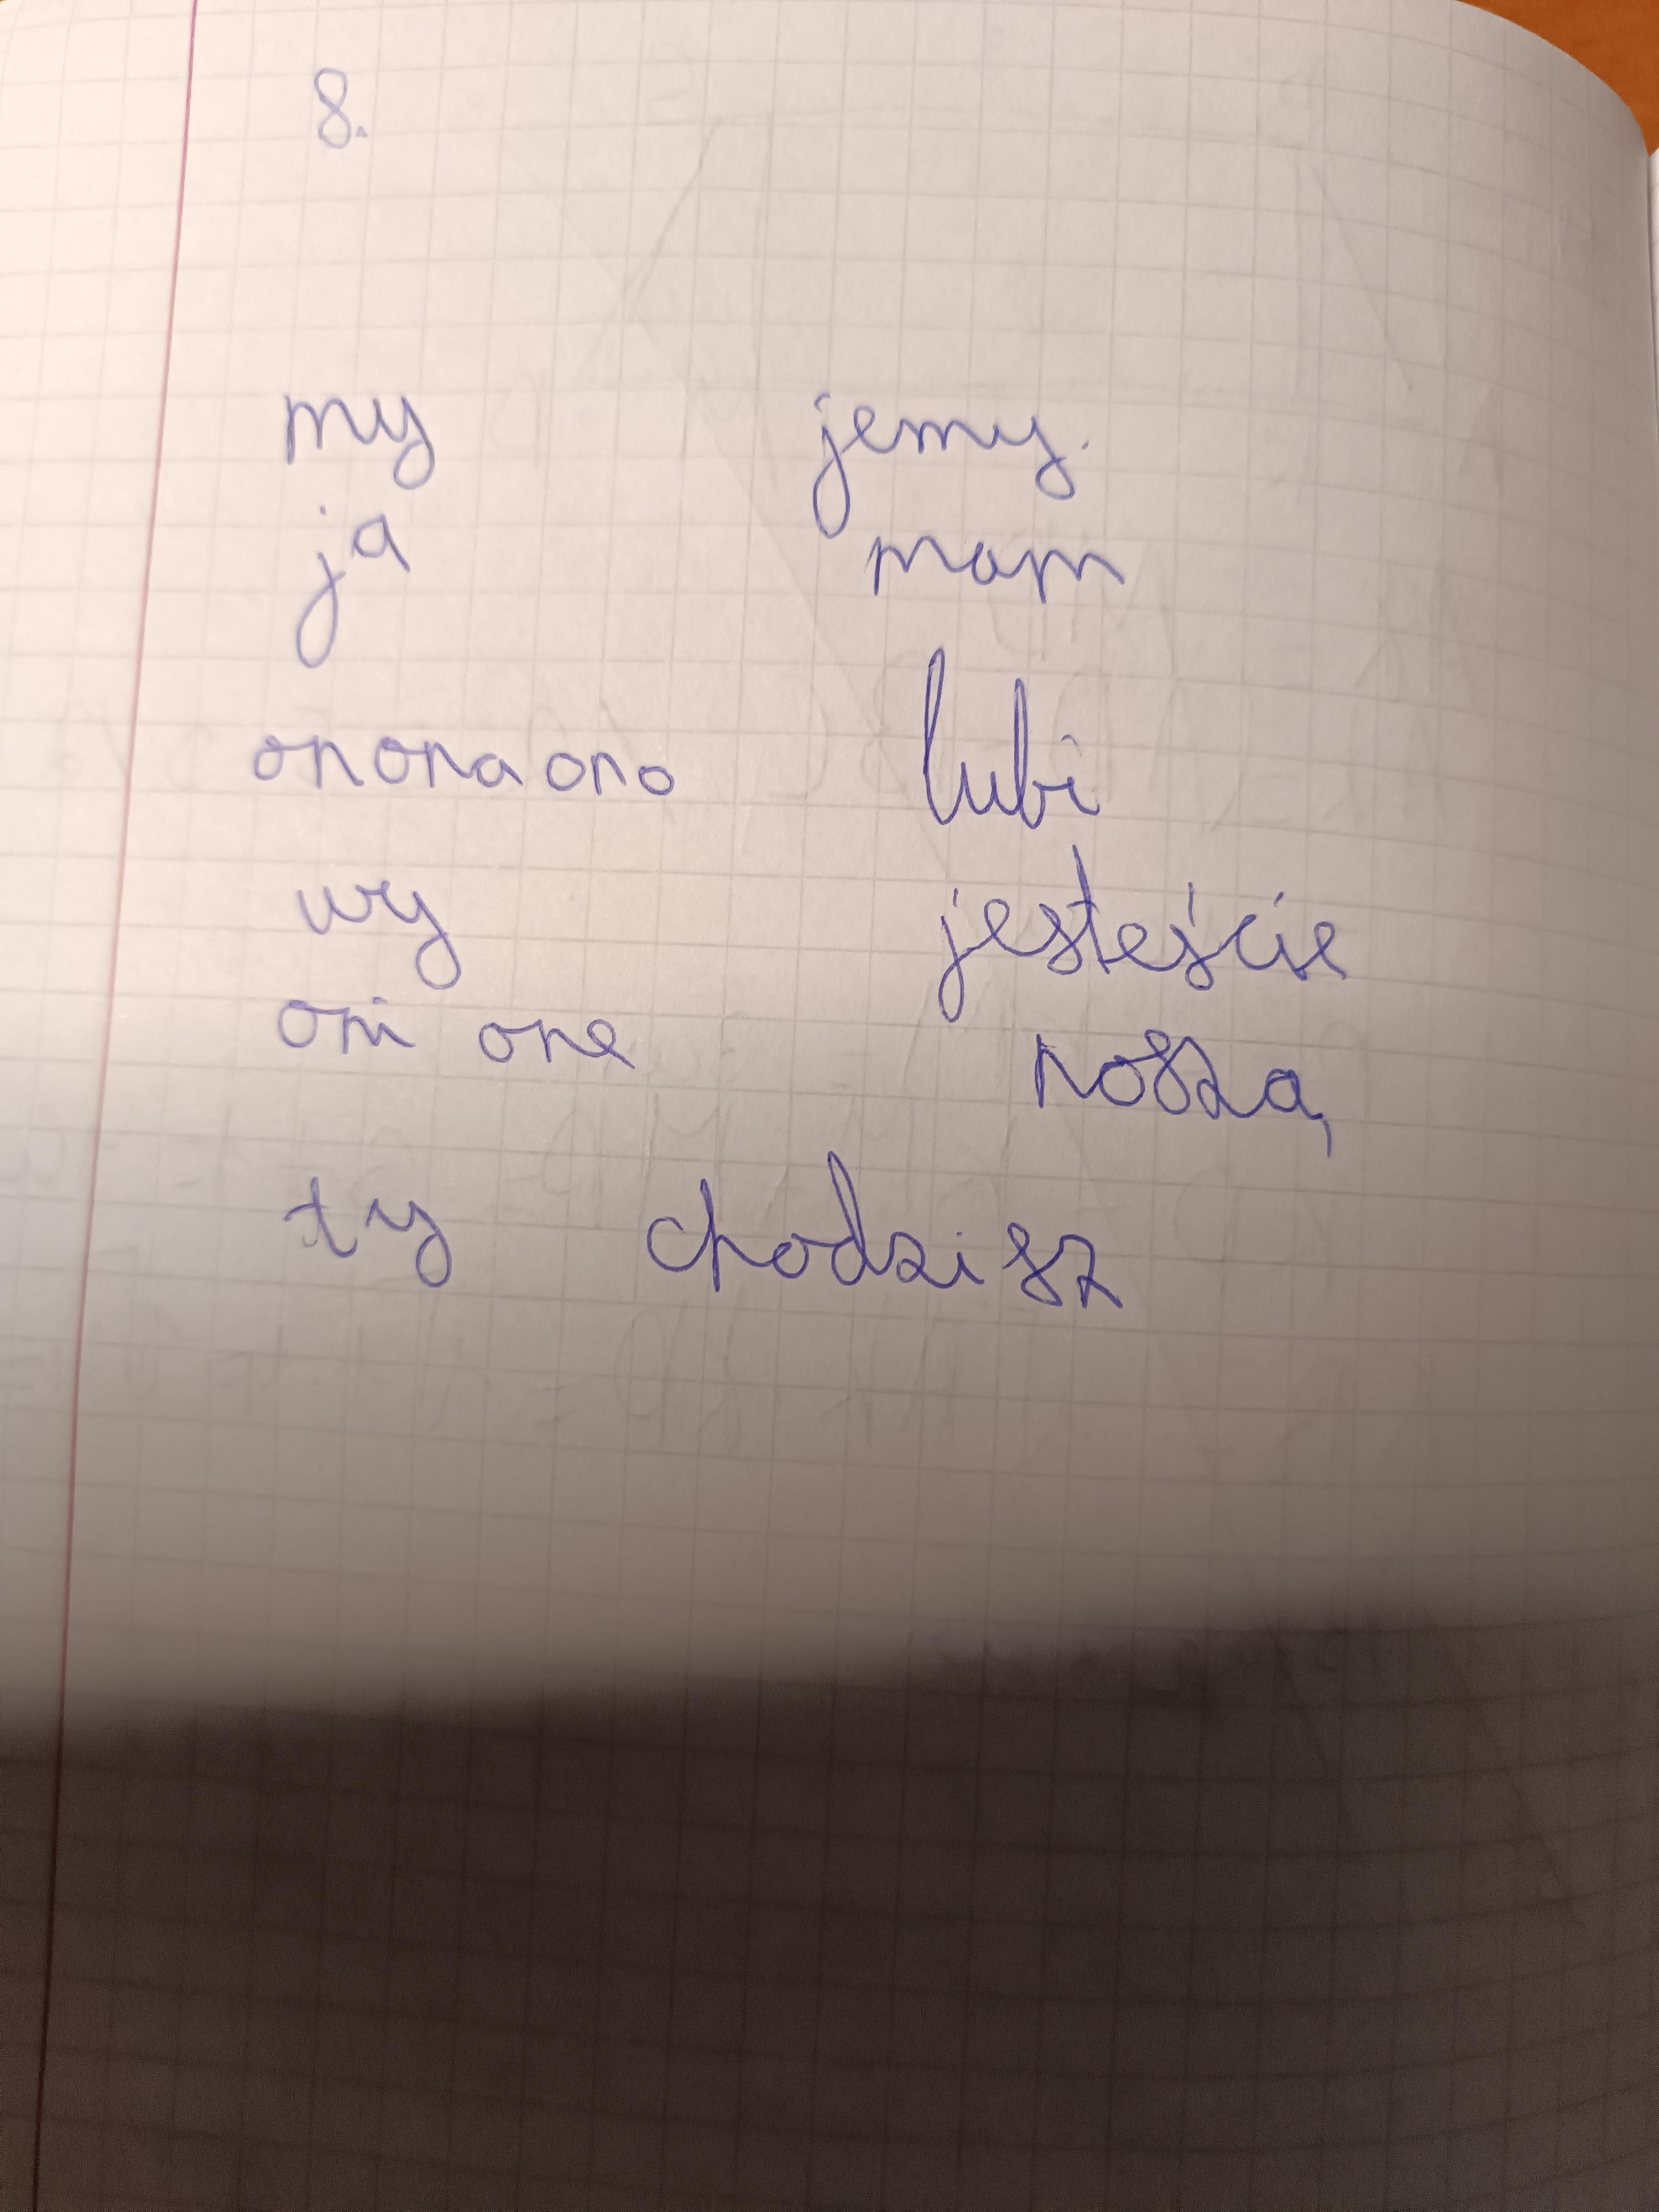 8.
my jemy.
ja mam
on ona ono lubi
wy jesteście
oni one noszą
ty chodzisz